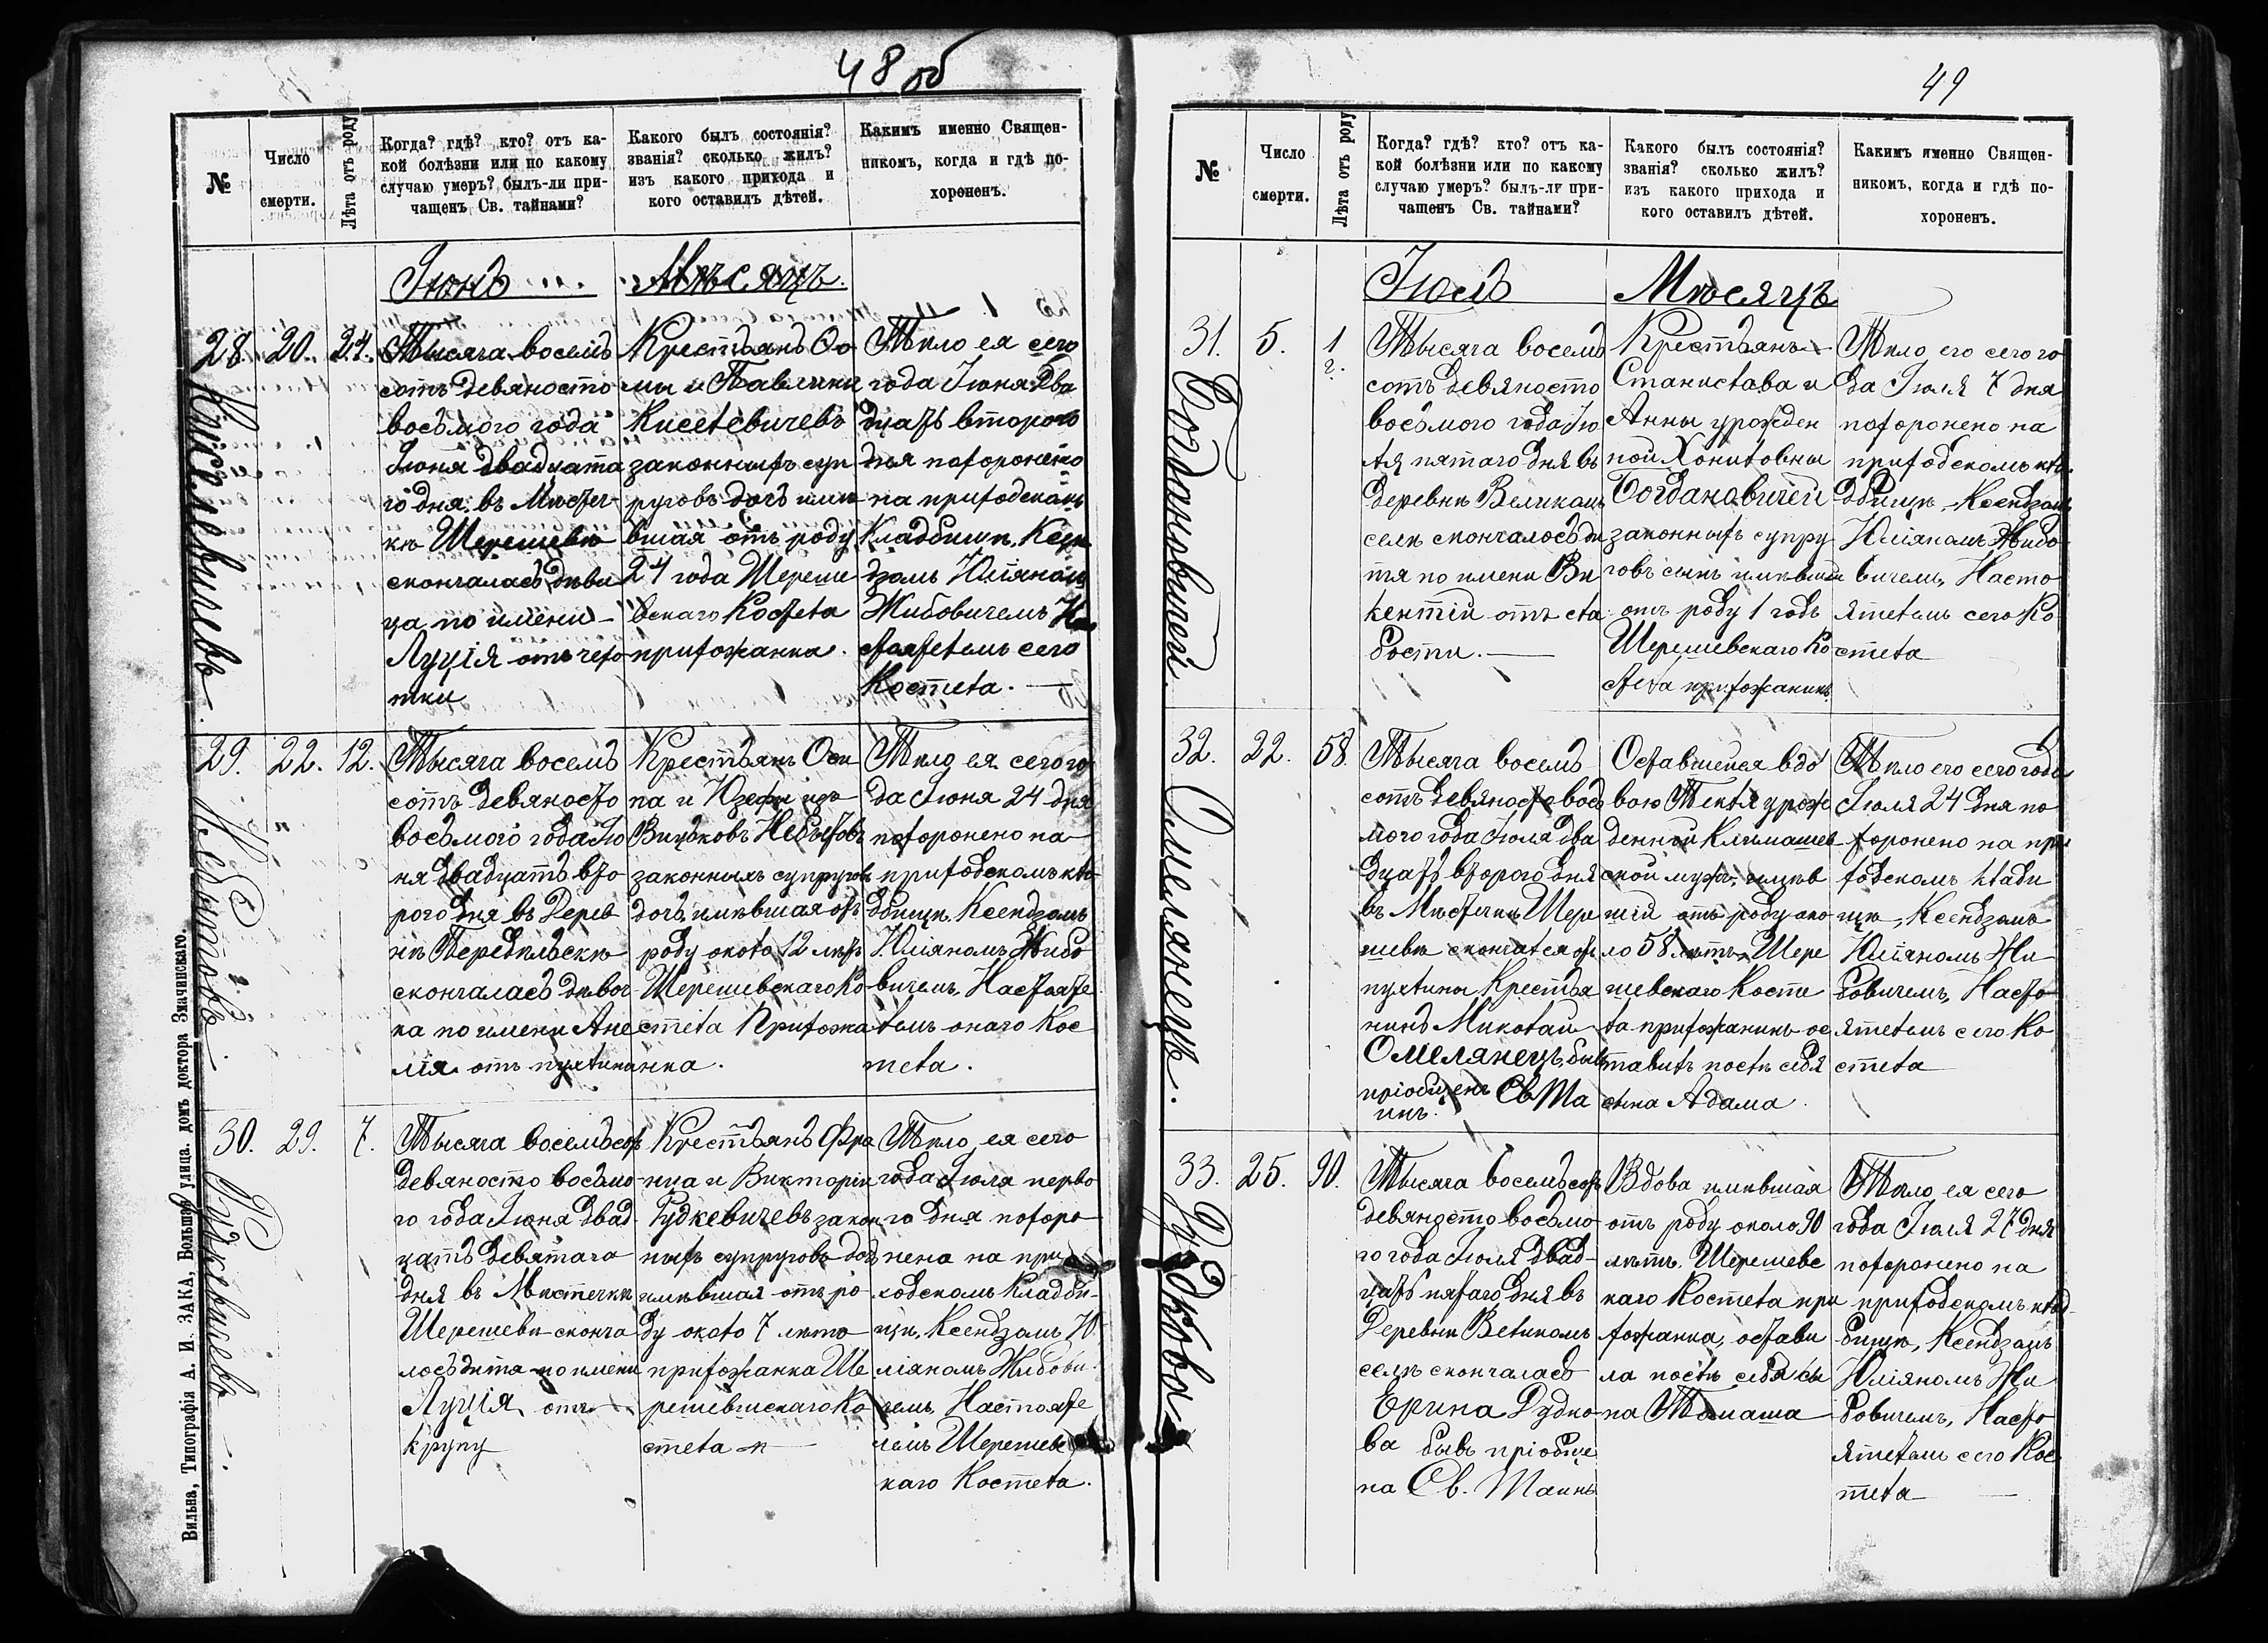 48 об
№
Число
смерти.
Лѣта отъ роду
Когда? гдѣ? кто? отъ ка-
кой болѣзни или по какому
случаю умеръ? былъ-ли при-
чащенъ Св. тайнами?
Какого былъ состоянія?
званія? сколько жилъ?
изъ какого прихода и
кого оставилъ дѣтей.
Какимъ именно Священ-
никомъ, когда и гдѣ по-
хороненъ.
Іюнь
Мѣсяцъ.
28. 20. 24.
Киселевичевъ
Тысяча восемь
сотъ девяносто
восьмого года
Іюня двадцата
го дня въ Мѣстеч-
кѣ Шерешевѣ
скончалась дѣви
ца по имени
Луція отъ чехо
тки
Крестьянъ
мы и Павлины
Киселевичевъ
законныхъ суп
руговъ дочь имѣ
вшая отъ роду
24 года Шереше
вскаго Костела
прихожанка.
Тѣло ея сего
года Іюня два
дцать второго
дня похоронено
на приходскомъ
Кладбищѣ, Ксен
дзомъ Юліаномъ
Жибовичемъ На
стоятелемъ сего
Костела.
29. 22. 12.
Небытовъ.
Тысяча восемь
сотъ девяносто
восьмого года Ію
ня двадцать вто
рого дня въ Дерев
нѣ Передѣльскѣ
скончалась дѣвоч
ка по имени Ане
лія отъ пухлины
Крестьянъ Оси
па и Юзефы изъ
Вицьковъ Небытовъ
законныхъ супруговъ
дочь, имѣвшая отъ
роду около 12 лѣтъ
Шерешевскаго Ко
стела Прихожа
нка.
Тѣло ея сего го
да Іюня 24 дня
похоронено на
приходскомъ кла
дбищѣ, Ксендзомъ
Юліаномъ Жибо
вичемъ, Настояте
лемъ онаго Кос
тела.
30. 29. 7.
Рудкевичевъ.
Тысяча восемьсотъ
девяносто восьмо
го года Іюня двад
цать девятаго
дня въ Мѣстечкѣ
Шерешевѣ сконча
лось дитя по имени
Луція отъ
крупу
Крестьянъ Фра
нца и Викторіи
Рудкевичевъ закон
ныхъ супруговъ дочь
имѣвшая отъ ро
ду около 7 лѣтъ
прихожанка Ше
решевшскаго Ко
стела
Тѣло ея сего
года Іюля перво
го дня похоро
нена на при
ходскомъ Кладби-
щѣ, Ксендзомъ Ю
ліаномъ Жибови
чемъ, Настояте
лемъ Шерешевс
каго Костела.
Вильна, Типографія А. И. ЗАКА, Большая улица. домъ доктора Значинскаго.
49
№
Число
смерти.
Лѣта отъ роду
Когда? гдѣ? кто? отъ ка-
кой болѣзни или по какому
случаю умеръ? былъ-ли при-
чащенъ Св. тайнами?
Какого былъ состоянія?
званія? сколько жилъ?
изъ какого прихода и
кого оставилъ дѣтей.
Какимъ именно Священ-
никомъ, когда и гдѣ по-
хороненъ.
Іюль
Мѣсяцъ
31. 5. 1
г.
Богдановичей.
Тысяча восемь
сотъ девяносто
восьмого года Ію
ля пятаго дня въ
деревнѣ Великомъ
селѣ скончалось ди
тя по имени Ви
кентій отъ сла
бости.
Крестьянъ
Станислава и
Анны урожден
ной Хонитовны
Богдановичей
законныхъ супру
говъ сынъ имѣвшій
отъ роду 1 годъ
Шерешевскаго Ко
стела прихожанинъ
Тѣло его сего го
да Іюля 7 дня
похоронено на
приходскомъ кла
дбищѣ, Ксендзомъ
Юліаномъ Жибо
вичемъ, Насто
ятелемъ сего Ко
стела
32. 22. 58.
Омелянецъ.
Тысяча восемь
сотъ девяносто вось
мого года Іюля два
дцать второго дня
въ Мѣстечкѣ Шере
шевѣ скончался отъ
пухлины Крестья
нинъ Николай
Омелянецъ, бывъ
пріобщенъ Св Та
инъ.
Оставшейся вдо
вою Теклѣ урож
денной Климашев
ской мужъ, имѣв
шій отъ роду око
ло 58 лѣтъ, Шере
шевскаго Косте
ла прихожанинъ ос
тавилъ послѣ себя
сына Адама
Тѣло его сего года
Іюля 24 дня по
хоронено на при
ходскомъ клади
щѣ, Ксендзомъ
Юліаномъ Жи
бовичемъ, Насто
ятелемъ сего Ко
стела
33. 25. 90.
Дудкова
Тысяча восемьсотъ
девяносто восьмо
го года Іюля двад-
цать пятаго дня въ
Деревнѣ Великомъ
селѣ скончалась
Ерина Дудко
ва бывъ пріобще
на Св. Таинъ
Вдова имѣвшая
отъ роду около 90
лѣтъ. Шерешевс
каго Костела при
хожанка, остави
ла послѣ себя сы
на Томаша
Тѣло ея сего
года Іюля 27 дня
похоронено на
приходскомъ клад-
бищѣ, Ксендзомъ
Юліаномъ Жи
бовичемъ, Насто
ятелемъ сего Кос
тела